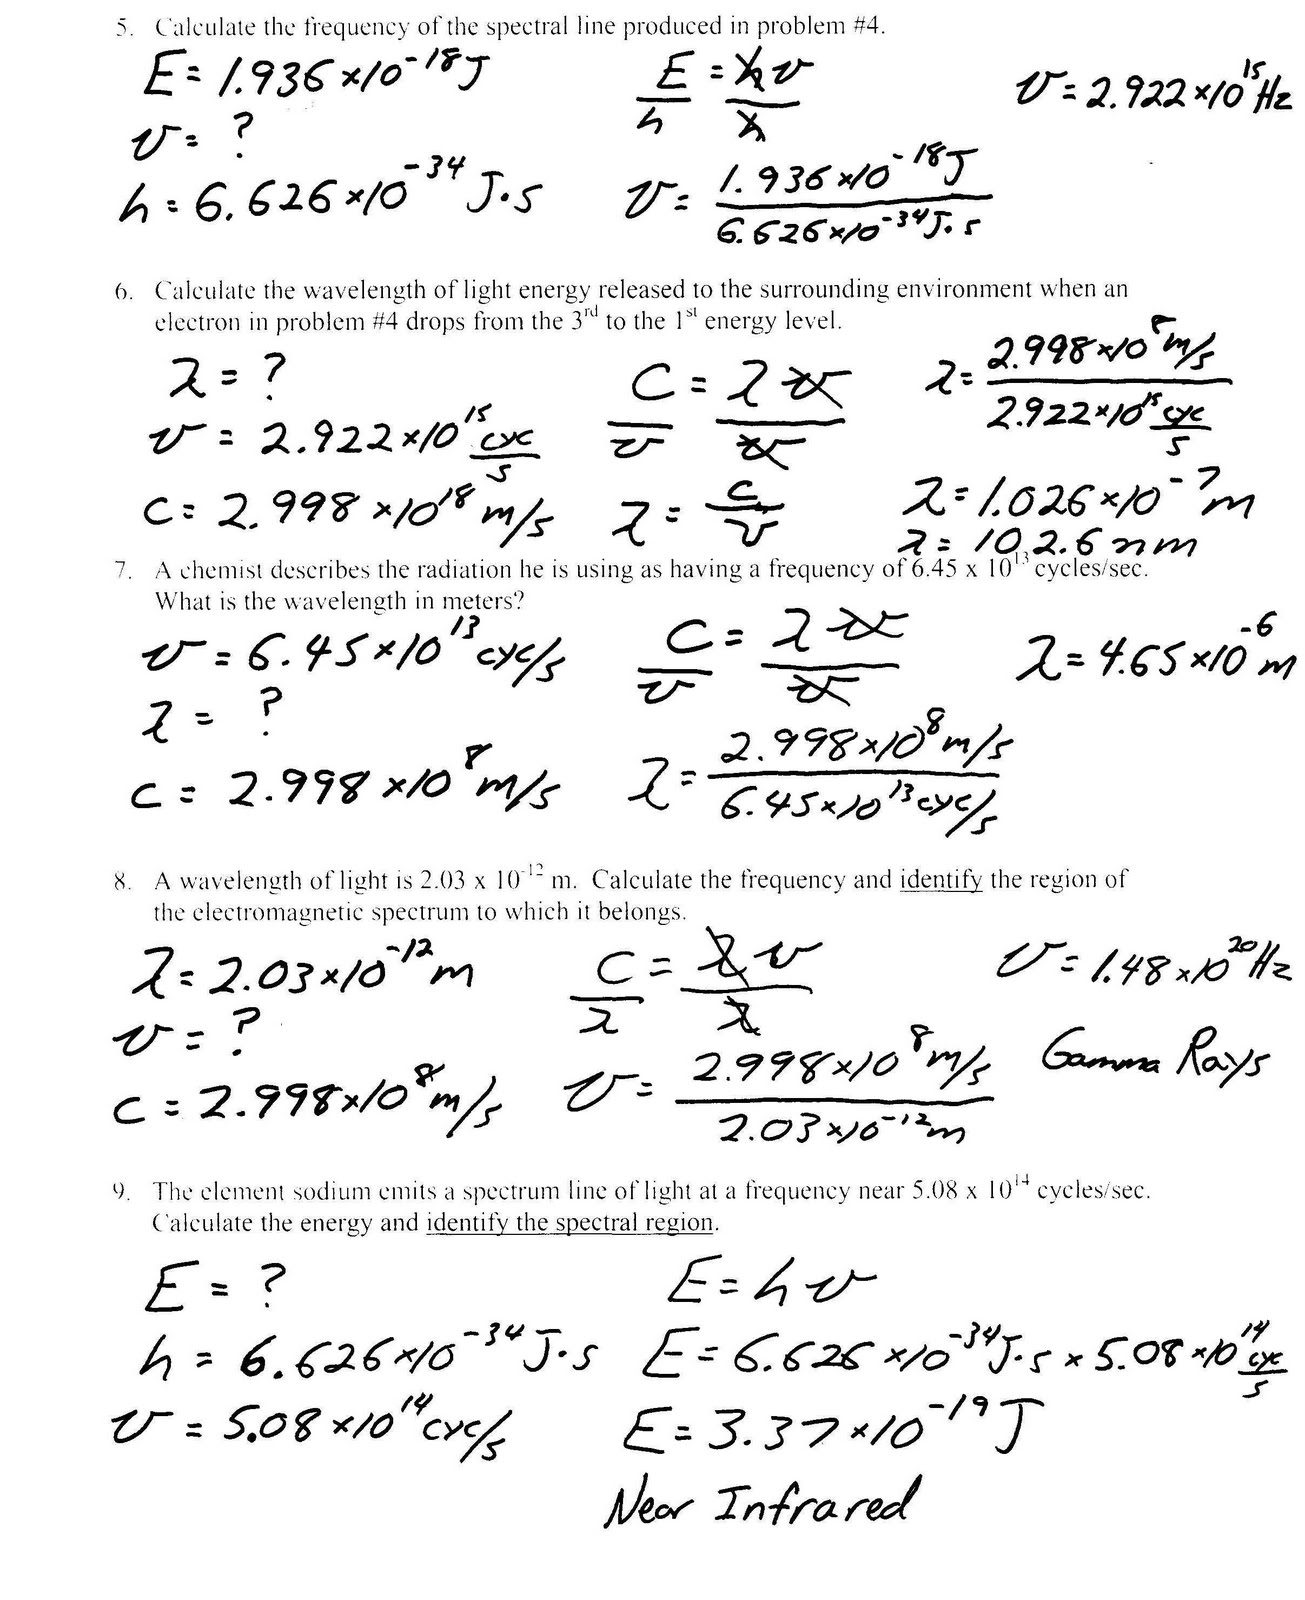 5. Calculate the frequency of the spectral line produced in problem #4.
E = 1.936 x10^-18 J
E = hν
h h
ν = 2.922 x10^15 Hz
ν = ?
h = 6.626 x10^-34 J·s
ν = 1.936 x10^-18 J
6.626 x10^-34 J·s
6. Calculate the wavelength of light energy released to the surrounding environment when an
electron in problem #4 drops from the 3rd to the 1st energy level.
λ = ?
C = λν
ν ν
λ = 2.998 x10^8 m/s
2.922 x10^15 cyc/s
ν = 2.922 x10^15 cyc/s
C = 2.998 x10^18 m/s
λ = c/ν
λ = 1.026 x10^-7 m
λ = 102.6 nm
7. A chemist describes the radiation he is using as having a frequency of 6.45 x 10^13 cycles/sec.
What is the wavelength in meters?
ν = 6.45 x10^13 cyc/s
C = λν
ν ν
λ = 4.65 x10^-6 m
λ = ?
C = 2.998 x10^8 m/s
λ = 2.998 x10^8 m/s
6.45 x10^13 cyc/s
8. A wavelength of light is 2.03 x 10^-12 m. Calculate the frequency and identify the region of
the electromagnetic spectrum to which it belongs.
λ = 2.03 x10^-12 m
C = λν
λ λ
ν = 1.48 x10^20 Hz
ν = ?
C = 2.998 x10^8 m/s
ν = 2.998 x10^8 m/s
2.03 x10^-12 m
Gamma Rays
9. The element sodium emits a spectrum line of light at a frequency near 5.08 x 10^14 cycles/sec.
Calculate the energy and identify the spectral region.
E = ?
E = hν
h = 6.626 x10^-34 J·s
E = 6.626 x10^-34 J·s x 5.08 x10^14 cyc/s
ν = 5.08 x10^14 cyc/s
E = 3.37 x10^-19 J
Near Infrared